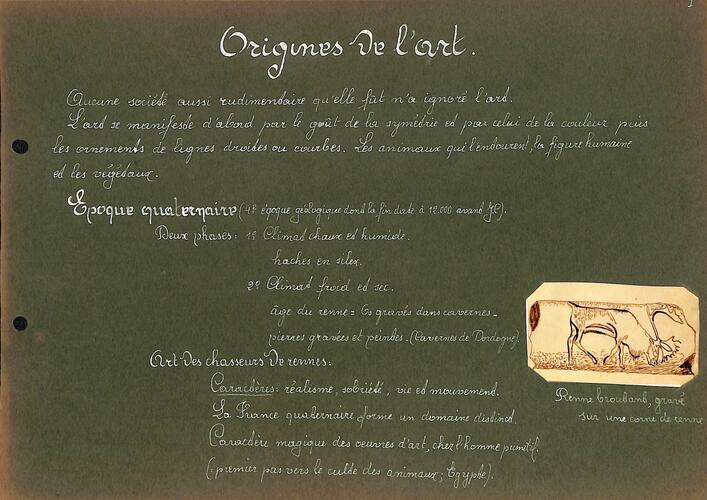 1
Origines De l'art.
Aucune société aussi rudimentaire qu'elle fût n'a ignoré l'art.
L'art se manifeste d'abord par le goût de la symétrie et par celui de la couleur puis
les ornements de lignes droites ou courbes. Les animaux qui l'entourent, la figure humaine
et les végétaux.
Epoque quaternaire (4e époque géologique dont la fin date à 12.000 avant JC).
Deux phases : 1º Climat chaux et humide.
haches en silex.
2º Climat froid et sec.
âge du renne = Os gravés dans cavernes -
pierres gravées et peintes. (Cavernes de Dordogne).
Art des chasseurs De rennes :
Caractères : réalisme, sobriété, vie et mouvement.
La France quaternaire forme un domaine distinct.
Caractère magique des oeuvres d'art, chez l'homme primitif.
(: premier pas vers le culte des animaux ; Egypte).
Renne broutant, gravé
sur une corne de renne